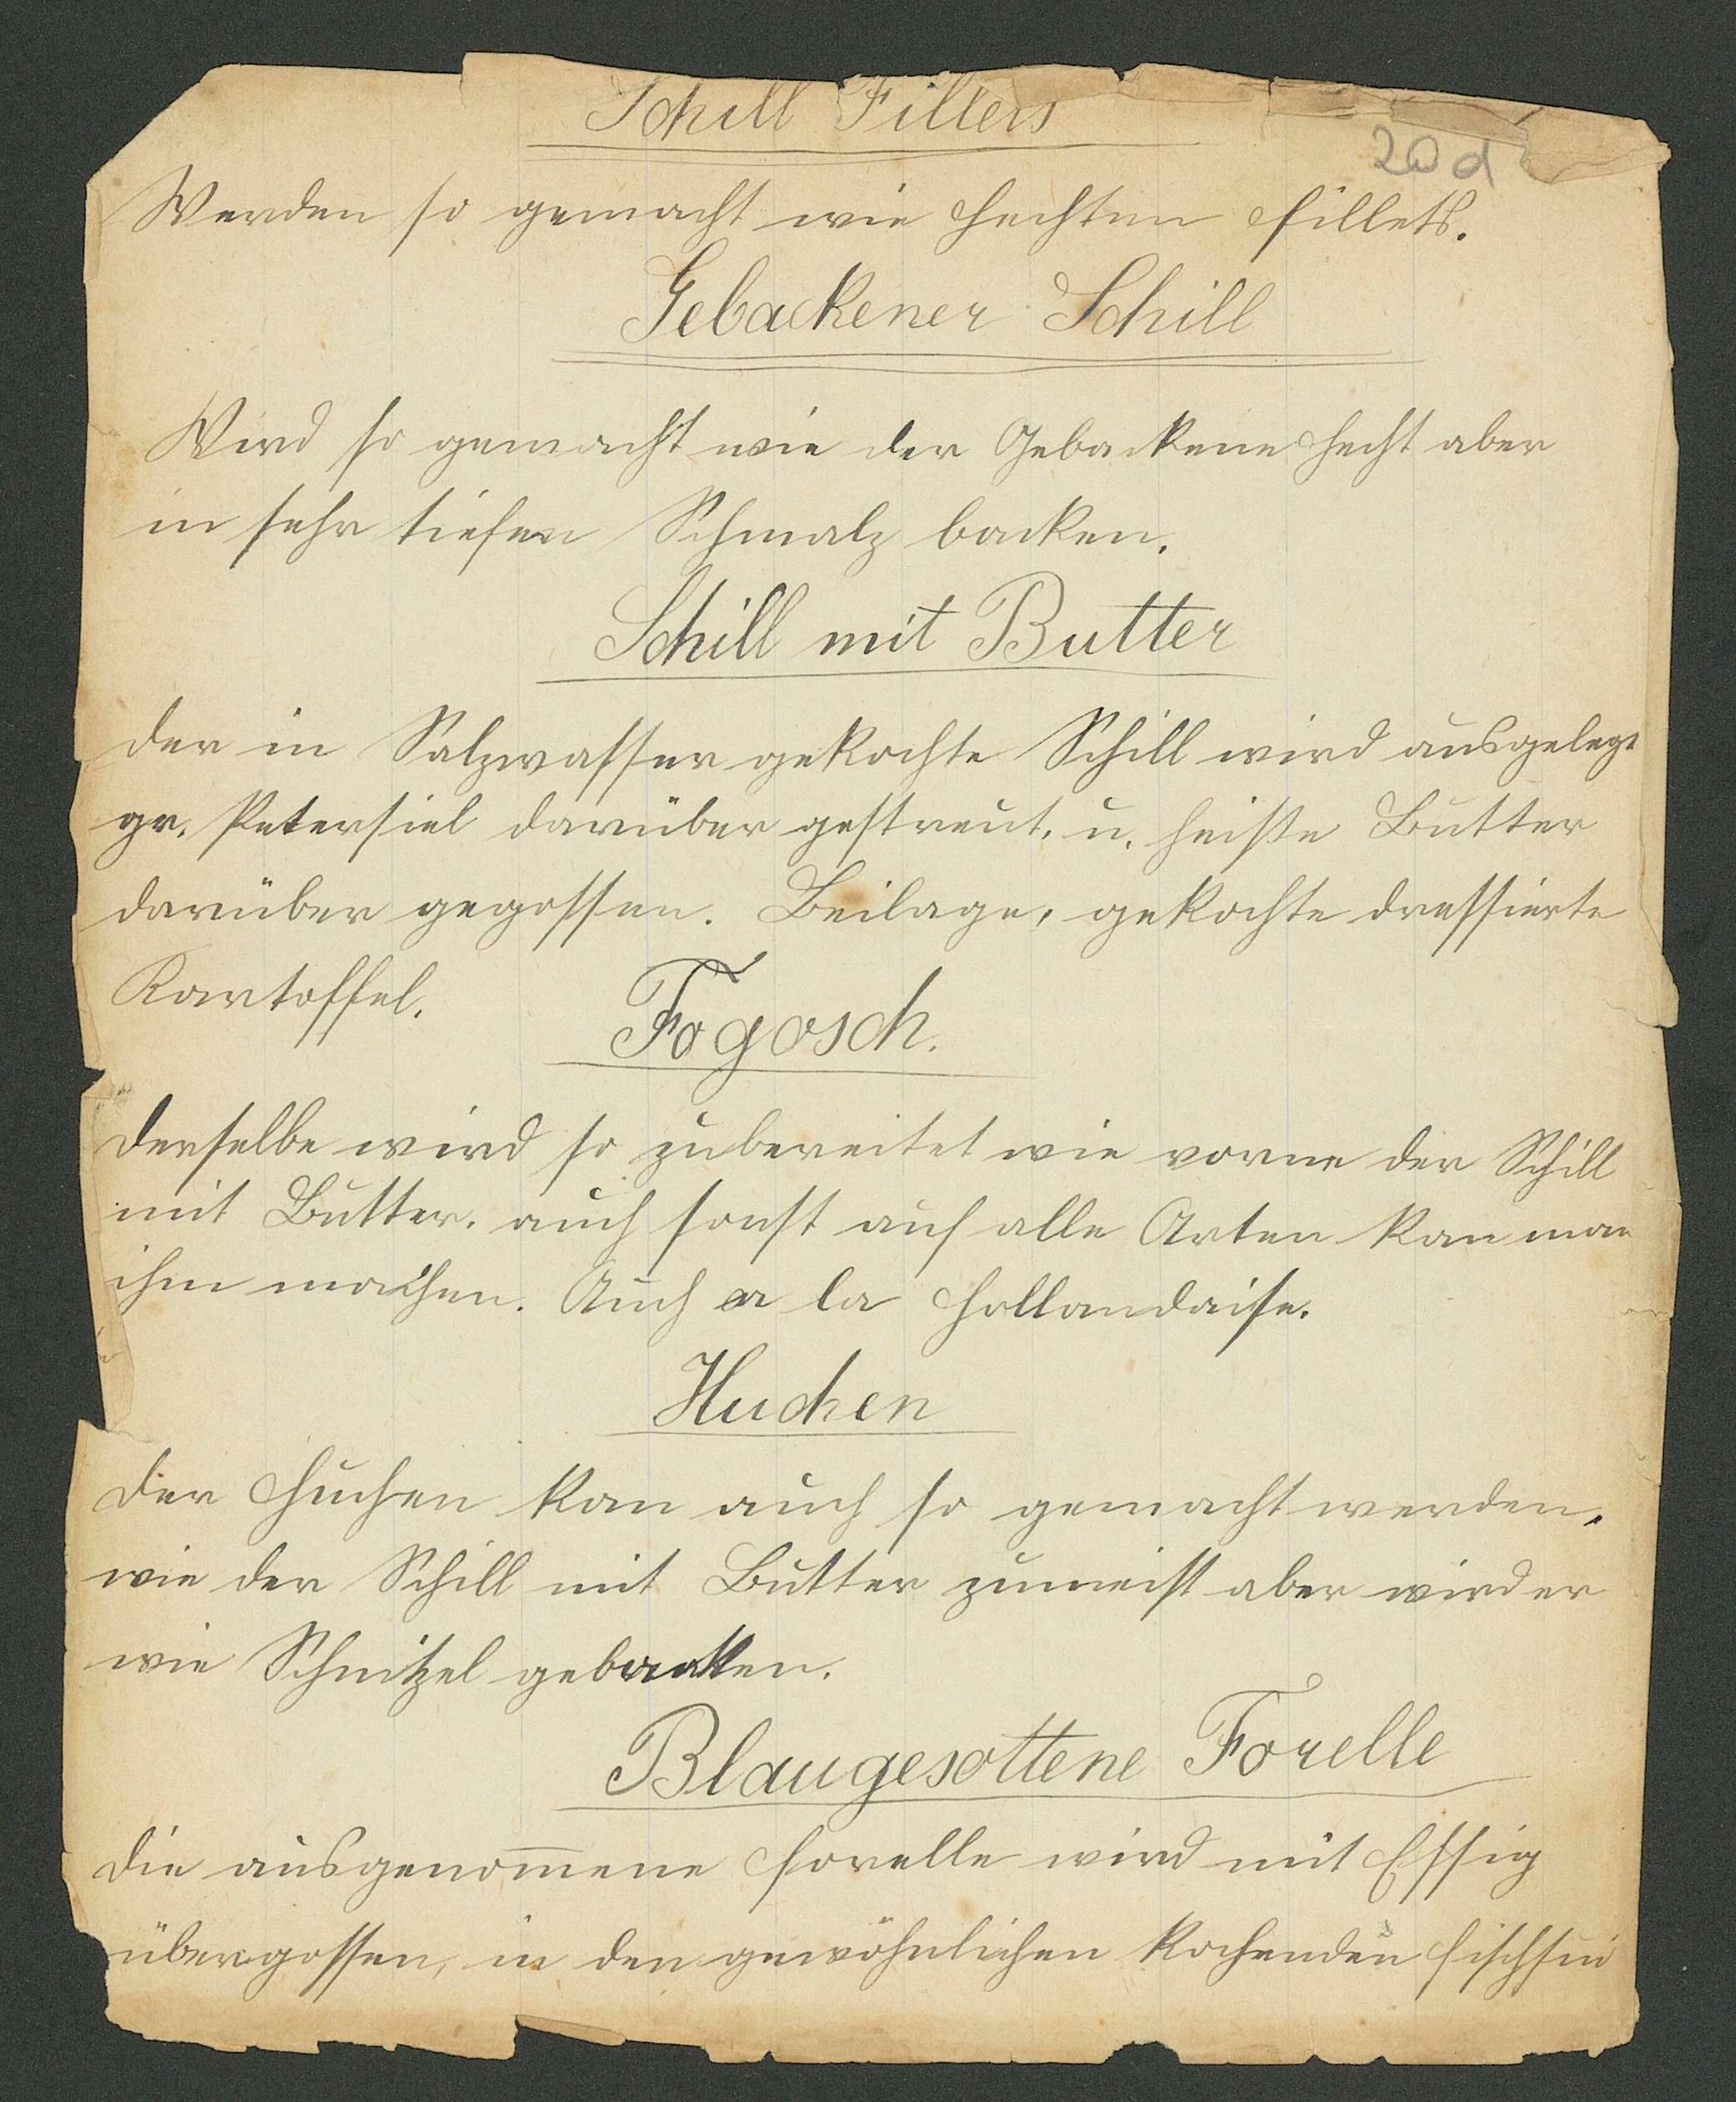 Schill Fillets
20d
Werden so gemacht wie Hechten Fillets.
Gebackener Schill
Wird so gemacht wie der Gebackene Hecht aber
in sehr tiefen Schmalz backen.
Schill mit Butter
Der in Salzwasser gekochte Schill wird ausgelegt
gr. Petersiel darüber gestreut. u. heiße Butter
darüber gegossen. Beilage, gekochte dressierte
Kartoffel.
Fogosch.
Derselbe wird so zubereitet wie vorne der Schill
mit Butter. auch sonst auf alle Arten kan man
ihm machen. Auch a la Hollandaise.
Huchen
Der Huchen kan auch so gemacht werden,
wie der Schill mit Butter zumeist aber wird er
wie Schnitzel gebacken.
Blaugesottene Forelle
Die ausgenom̅ene Forelle wird mit Essig
übergossen, in den gewöhnlichen kochenden Fischsud